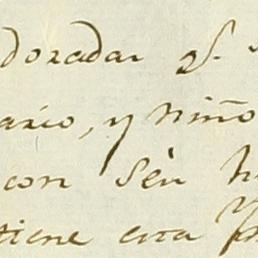 doradas
ario, y niño
con Sèu
tiene esta